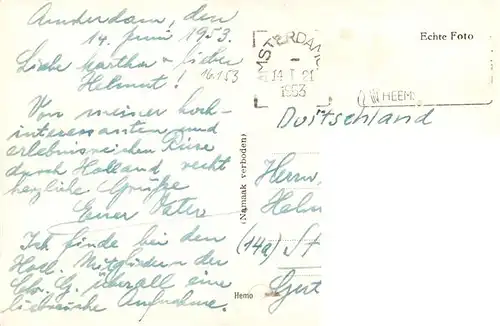 Amsterdam, den
14. Juni 1953.
Liebe Martha & lieber
Helmut! 16.1.53
Von meiner hoch-
interessanten und
erlebnisreichen Reise
durch Holland recht
herzliche Grüße
Euer Vater
Ich finde bei den
Holl. Mitgliedern der
Chr. G. überall eine
liebreiche Aufnahme.
(Namaak verboden)
Hemo
AMSTERDAM
1953
Echte Foto
HEEMS
Duitschland
Herrn
Helm
(14a) St